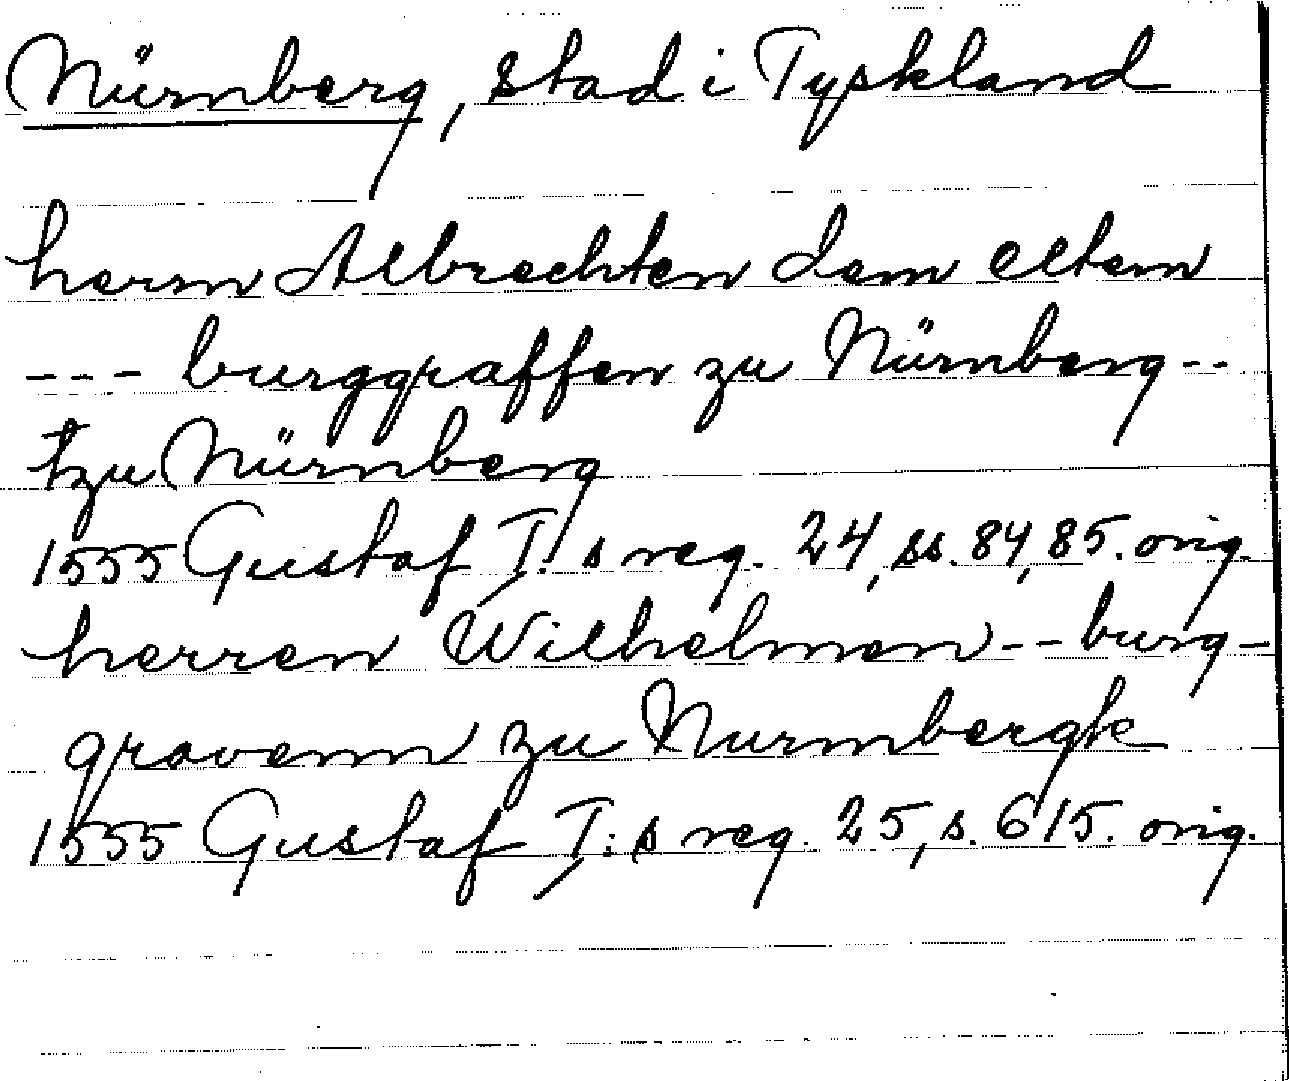 Nürnberg, stad i Tyskland
herrn Albrechten dem eltern
--- burggraffen zu Nürnberg--
tzu Nürnberg
1555 Gustaf I:s reg. 24, ss. 84, 85. orig.
herren Wilhelmen -- burg-
gravenn zu Nurmbergk
1555 Gustaf I:s reg. 25, s. 615. orig.